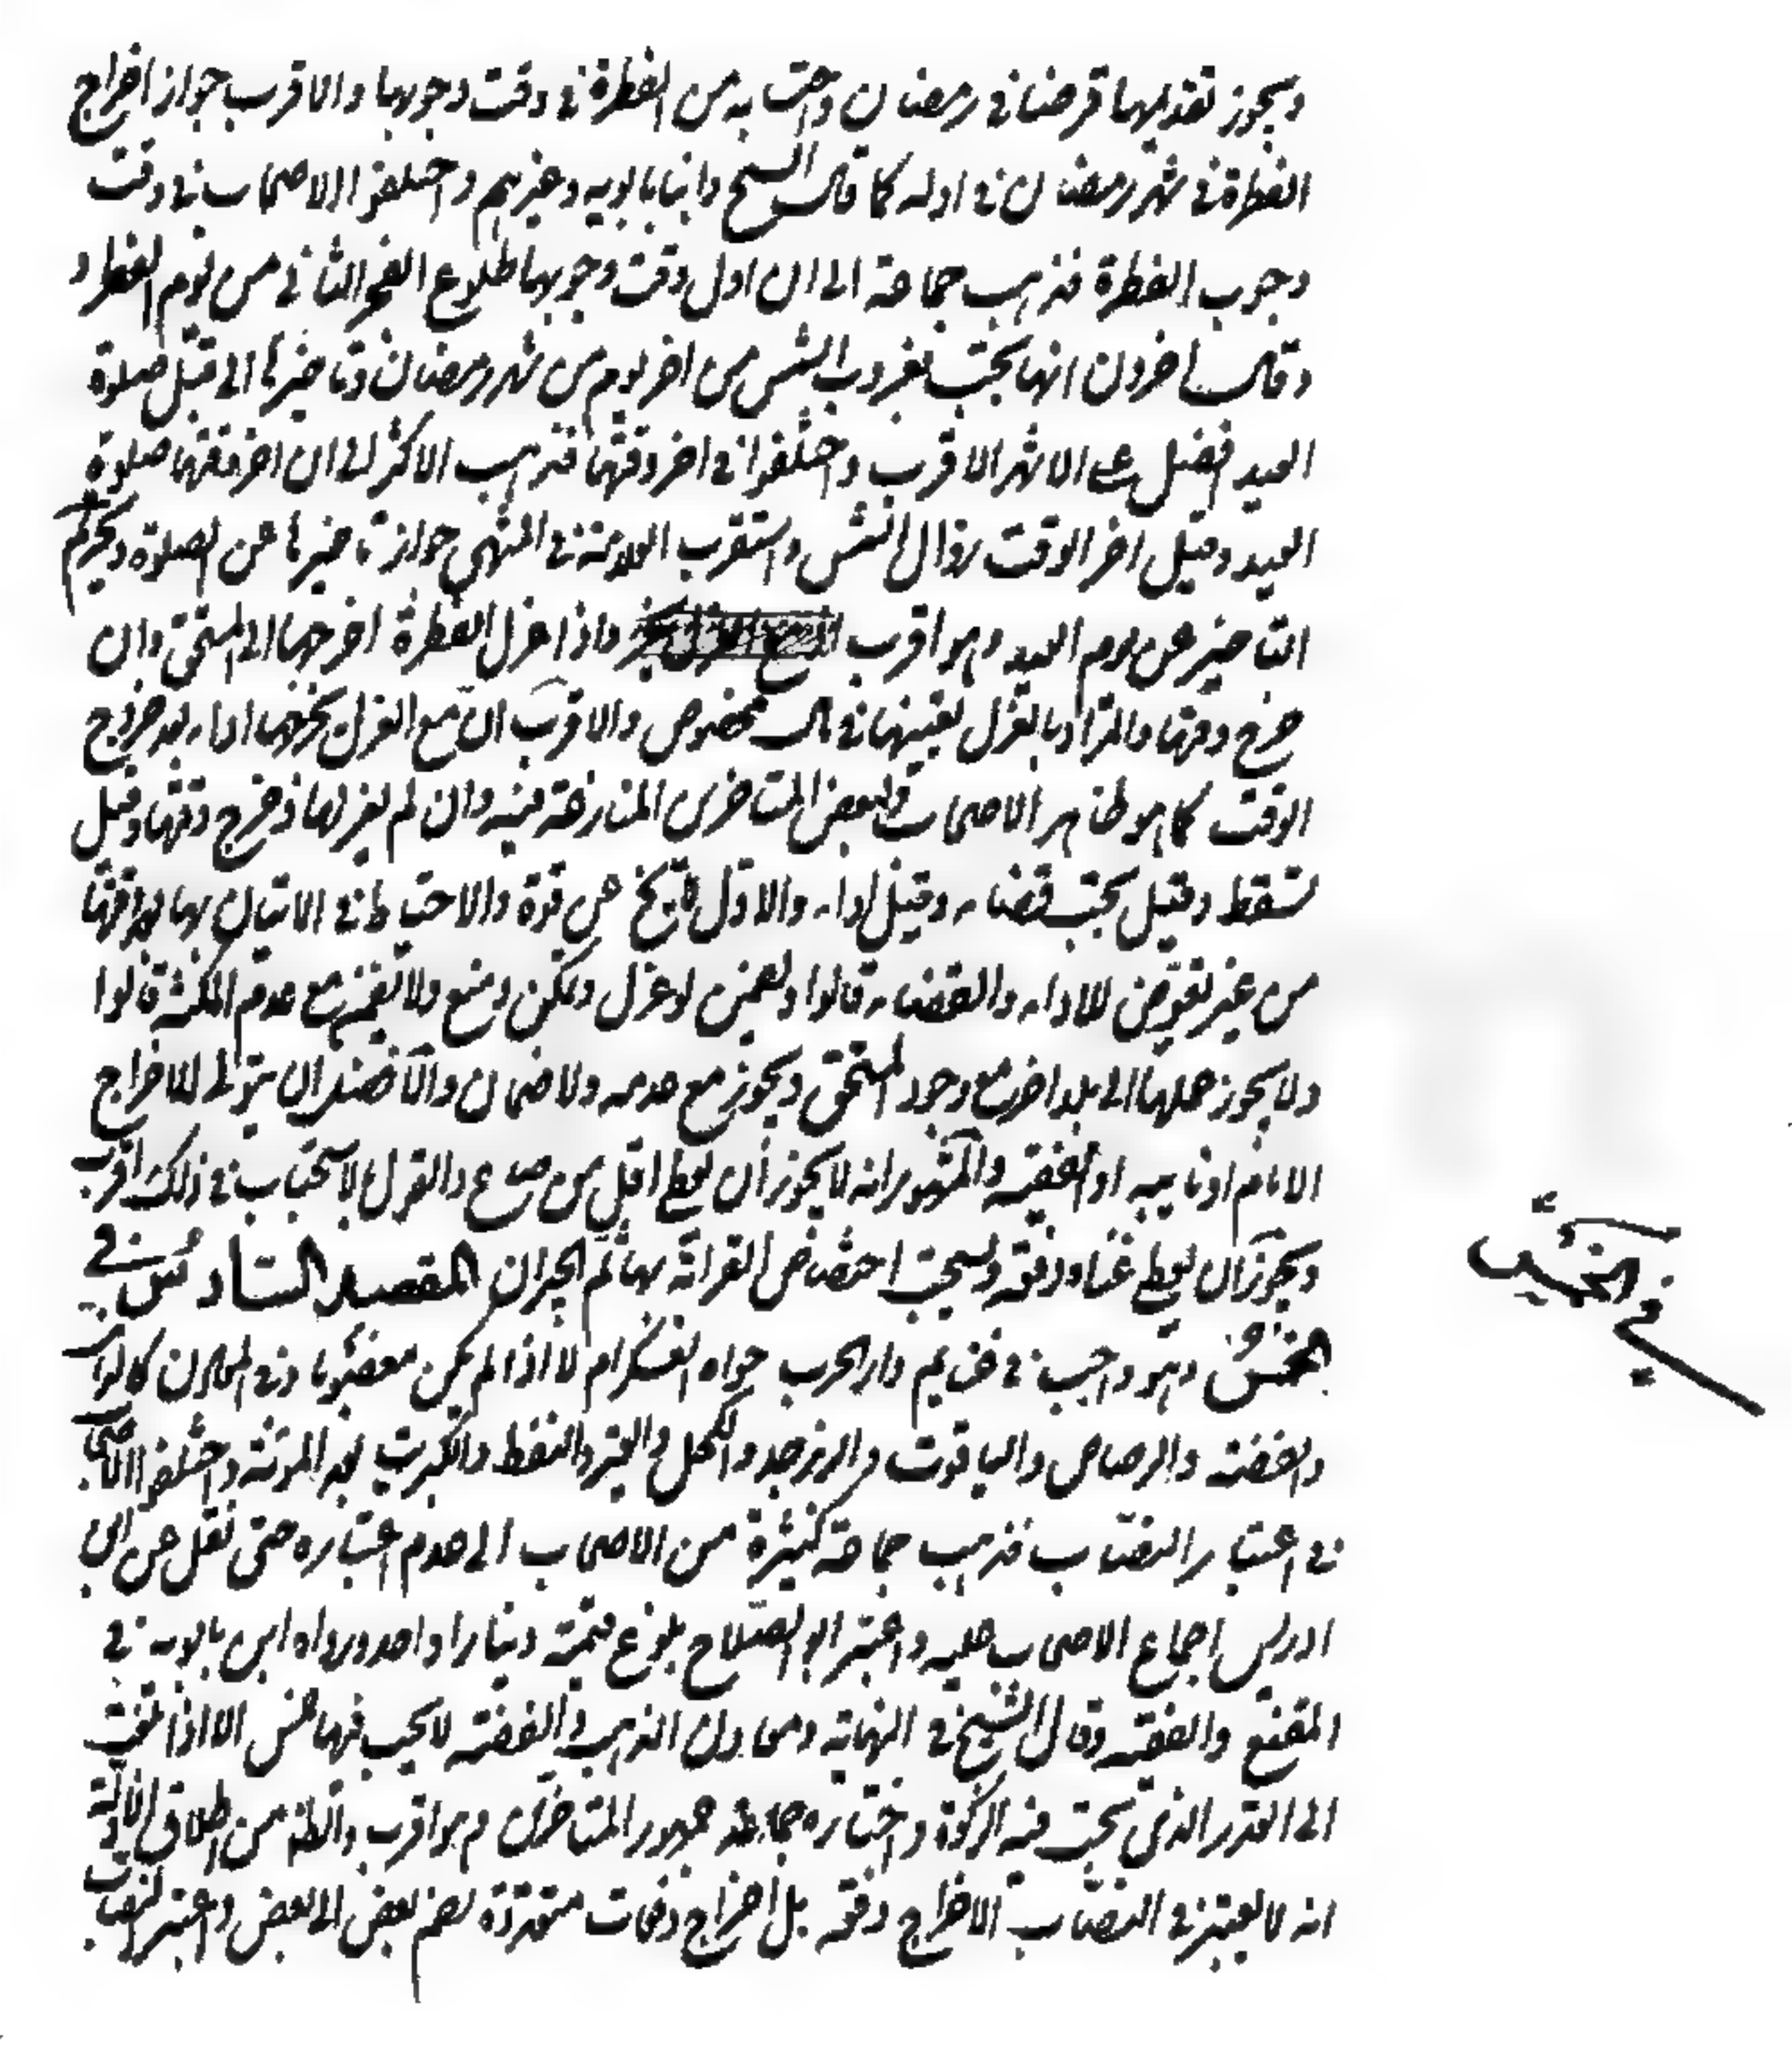 ويجوز تقديمها قرضا في رمضان واحتسابه من الفطرة في وقت وجوبها والاقرب جواز اخراج
الفطرة في شهر رمضان في اوله كما قال الشيخ وابنا بابويه وغيرهم واختلفوا الاصحاب في وقت
وجوب الفطرة فذهب جماعة الى ان اول وقت وجوبها طلوع الفجر الثاني من يوم الفطر و
وقال اخرون انها تجب بغروب الشمس من اخر يوم من شهر رمضان وتاخيرها الى قبل صلوة
العيد افضل على الاشهر الاقرب واختلفوا في اخر وقتها فذهب الاكثر الى ان اخر وقتها صلوة
العيد وقيل اخر الوقت زوال الشمس واستقرب العلامة في المنتهى جواز تاخيرها عن الصلوة وتحريم
التاخير عن يوم العيد وهو اقرب واذا عزل الفطرة اخرجها الى المستحق وان
خرج وقتها والمراد بالعزل تعيينها في مال مخصوص والاقرب ان مع العزل يخرجها اداء بعد خروج
الوقت كما هو ظاهر الاصحاب ولبعض المتاخرين المنازعة فيه وان لم يعزلها وخرج وقتها وقيل
تسقط وقيل يجب قضاء وقيل اداء والاول لا يخ عن قوة والاحتياط في الاتيان بها بعد وقتها
من غير تعرض للاداء والقضاء قالوا ويضمن لو عزل وتمكن ومنع ولا يضمن مع عدم المكنة قالوا
ولا يجوز حملها الى بلد اخر مع وجود المستحق ويجوز مع عدمه ولا ضمان والافضل ان يتولى للاخراج
الامام او نايبه او الفقيه والمشهور انه لا يجوز ان يعطى اقل من صاع والقول بالاستحباب في ذلك اقرب
ويجوز ان يعطى غناه دفعة ويستحب اختصاص القرابة بها ثم الجيران المقصد السادس في
الخمس وهو واجب في غنايم دار الحرب حواه العسكر ام لا اذا لم يكن مغصوبا وفي المعادن كالذهب
والفضة والرصاص والياقوت والزبرجد والكحل والعنبر والنفط والكبريت بعد المؤنة واختلفوا الاصحاب
في اعتبار النصاب فذهب جماعة كثيرة من الاصحاب الى عدم اعتباره حتى نقل عن ابن
ادريس اجماع الاصحاب عليه واعتبر ابو الصلاح بلوغ قيمته دينارا واحدا ورواه ابن بابويه في
المقنع والفقيه وقال الشيخ في النهاية ومعادن الذهب والفضة لا يجب فيها خمس الا اذا بلغت
الى القدر الذي تجب فيه الزكوة واختاره جمهور المتاخرين وهو اقرب والظاهر من اطلاق الادلة
انه لا يعتبر في النصاب الاخراج دفعة بل اخراج دفعات متعددة يضم بعض الى بعض واعتبر النصاب
في الخمس